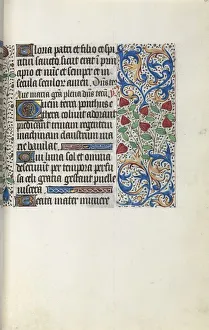 Gloria patri et filio et spi
ritui sancto sicut erat i prin
cipio et nuc et semper et in
secula seculor amen.
maria plena
Quem terra ponthus
ethera colunt adorant
predicant trinam regentem
machinam claustrum ma
rie baiulat
Cui luna sol et omnia
deserviunt per tempora perfu
sa celi gratia gestant puelle
viscera
Beata mater munere